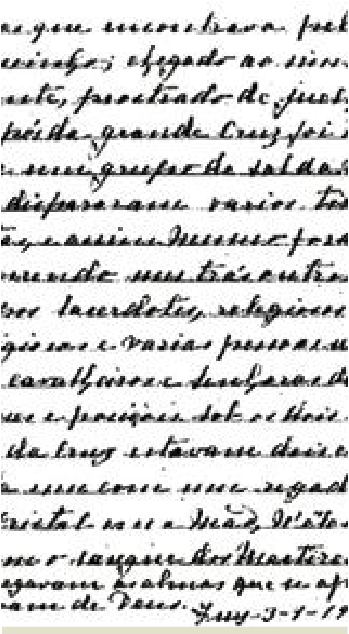 que encontrava pel
minho; chegado ao cim
nte, prostrado de joel
pés da grande Cruz foi
e um grupo de solda
dispararam varios ti
tas, e assim mesmo fora
rrendo uns trás outro
pos sacerdotes, religiosos
giosas e varias pessoas
cavalheiros e senhoras de
ses e posições sob os dois
da Cruz estavam dois
da um com um regad
cristal em a mão, n'êles
am o sangue dos Martires
egavam as almas que se ap
vam de Deus. Tuy-3-1-19